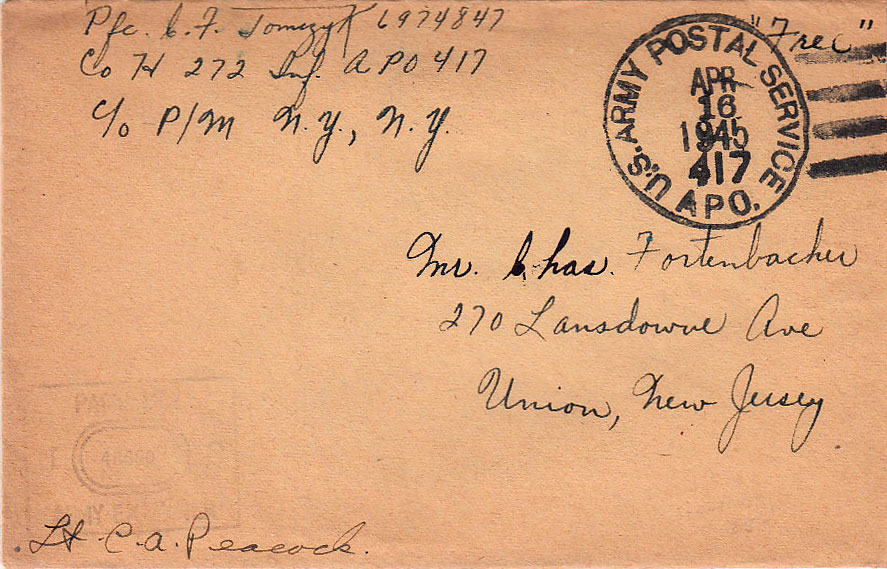 Pfc. C. F. Tomczyk 6974847
Co H 272 Inf. APO 417
c/o P/M N.Y., N.Y.
"Free"
U.S. ARMY POSTAL SERVICE
APR
16
1945
417
A.P.O.
Mr. Chas. Fortenbacher
270 Lansdowne Ave
Union, New Jersey
PASSED BY
ARMY EXAMINER
Lt C.A. Peacock.